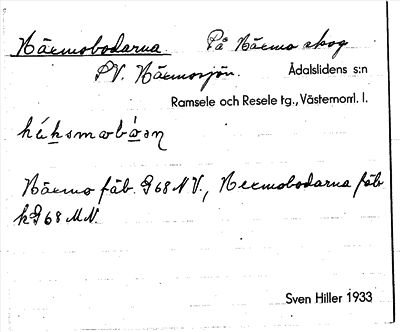 Närmobodarna På Närmo skog
SV. Närmosjön. Ådalslidens s:n
Ramsele och Resele tg., Västernorrl. l.
Närmo fäb. G68NV., Nermobodarna fäb
kG68MN.
Sven Hiller 1933